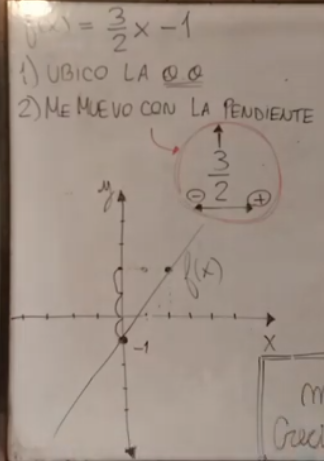 f(x) = 3/2 x - 1
1) UBICO LA O.O
2) ME MUEVO CON LA PENDIENTE
3/2
- +
y
f(x)
-1
x
m
Creci